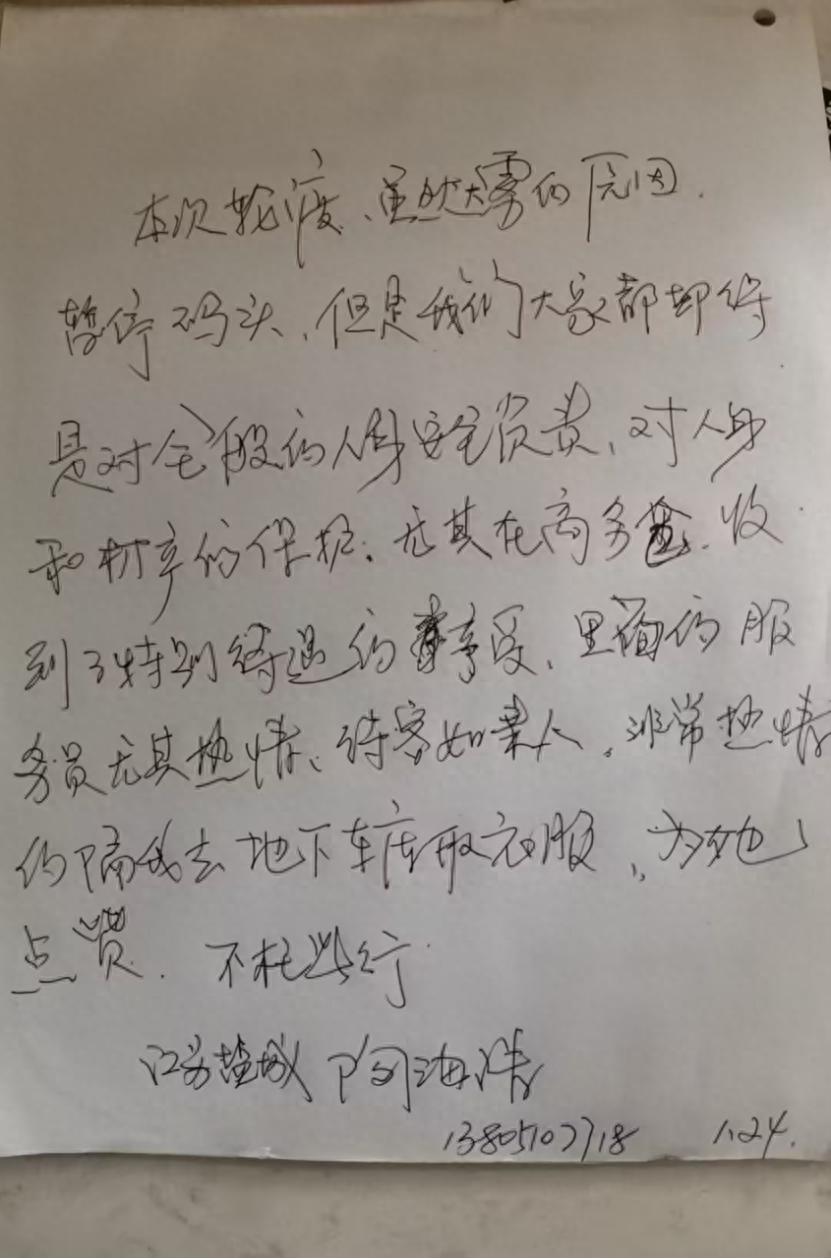 本次轮渡、虽然大雾的原因.
暂停码头、但是我们大家都却得
是对全船的人身安全负责、对人身
和财产的保护. 尤其在商务舱. 收
到了特别待遇的享受、里面的服
务员尤其热情、待客如亲人, 非常热情
的陪我去地下车库取衣服, 为她
点赞. 不枉此行
江苏盐城 海
13805107718 1.24.